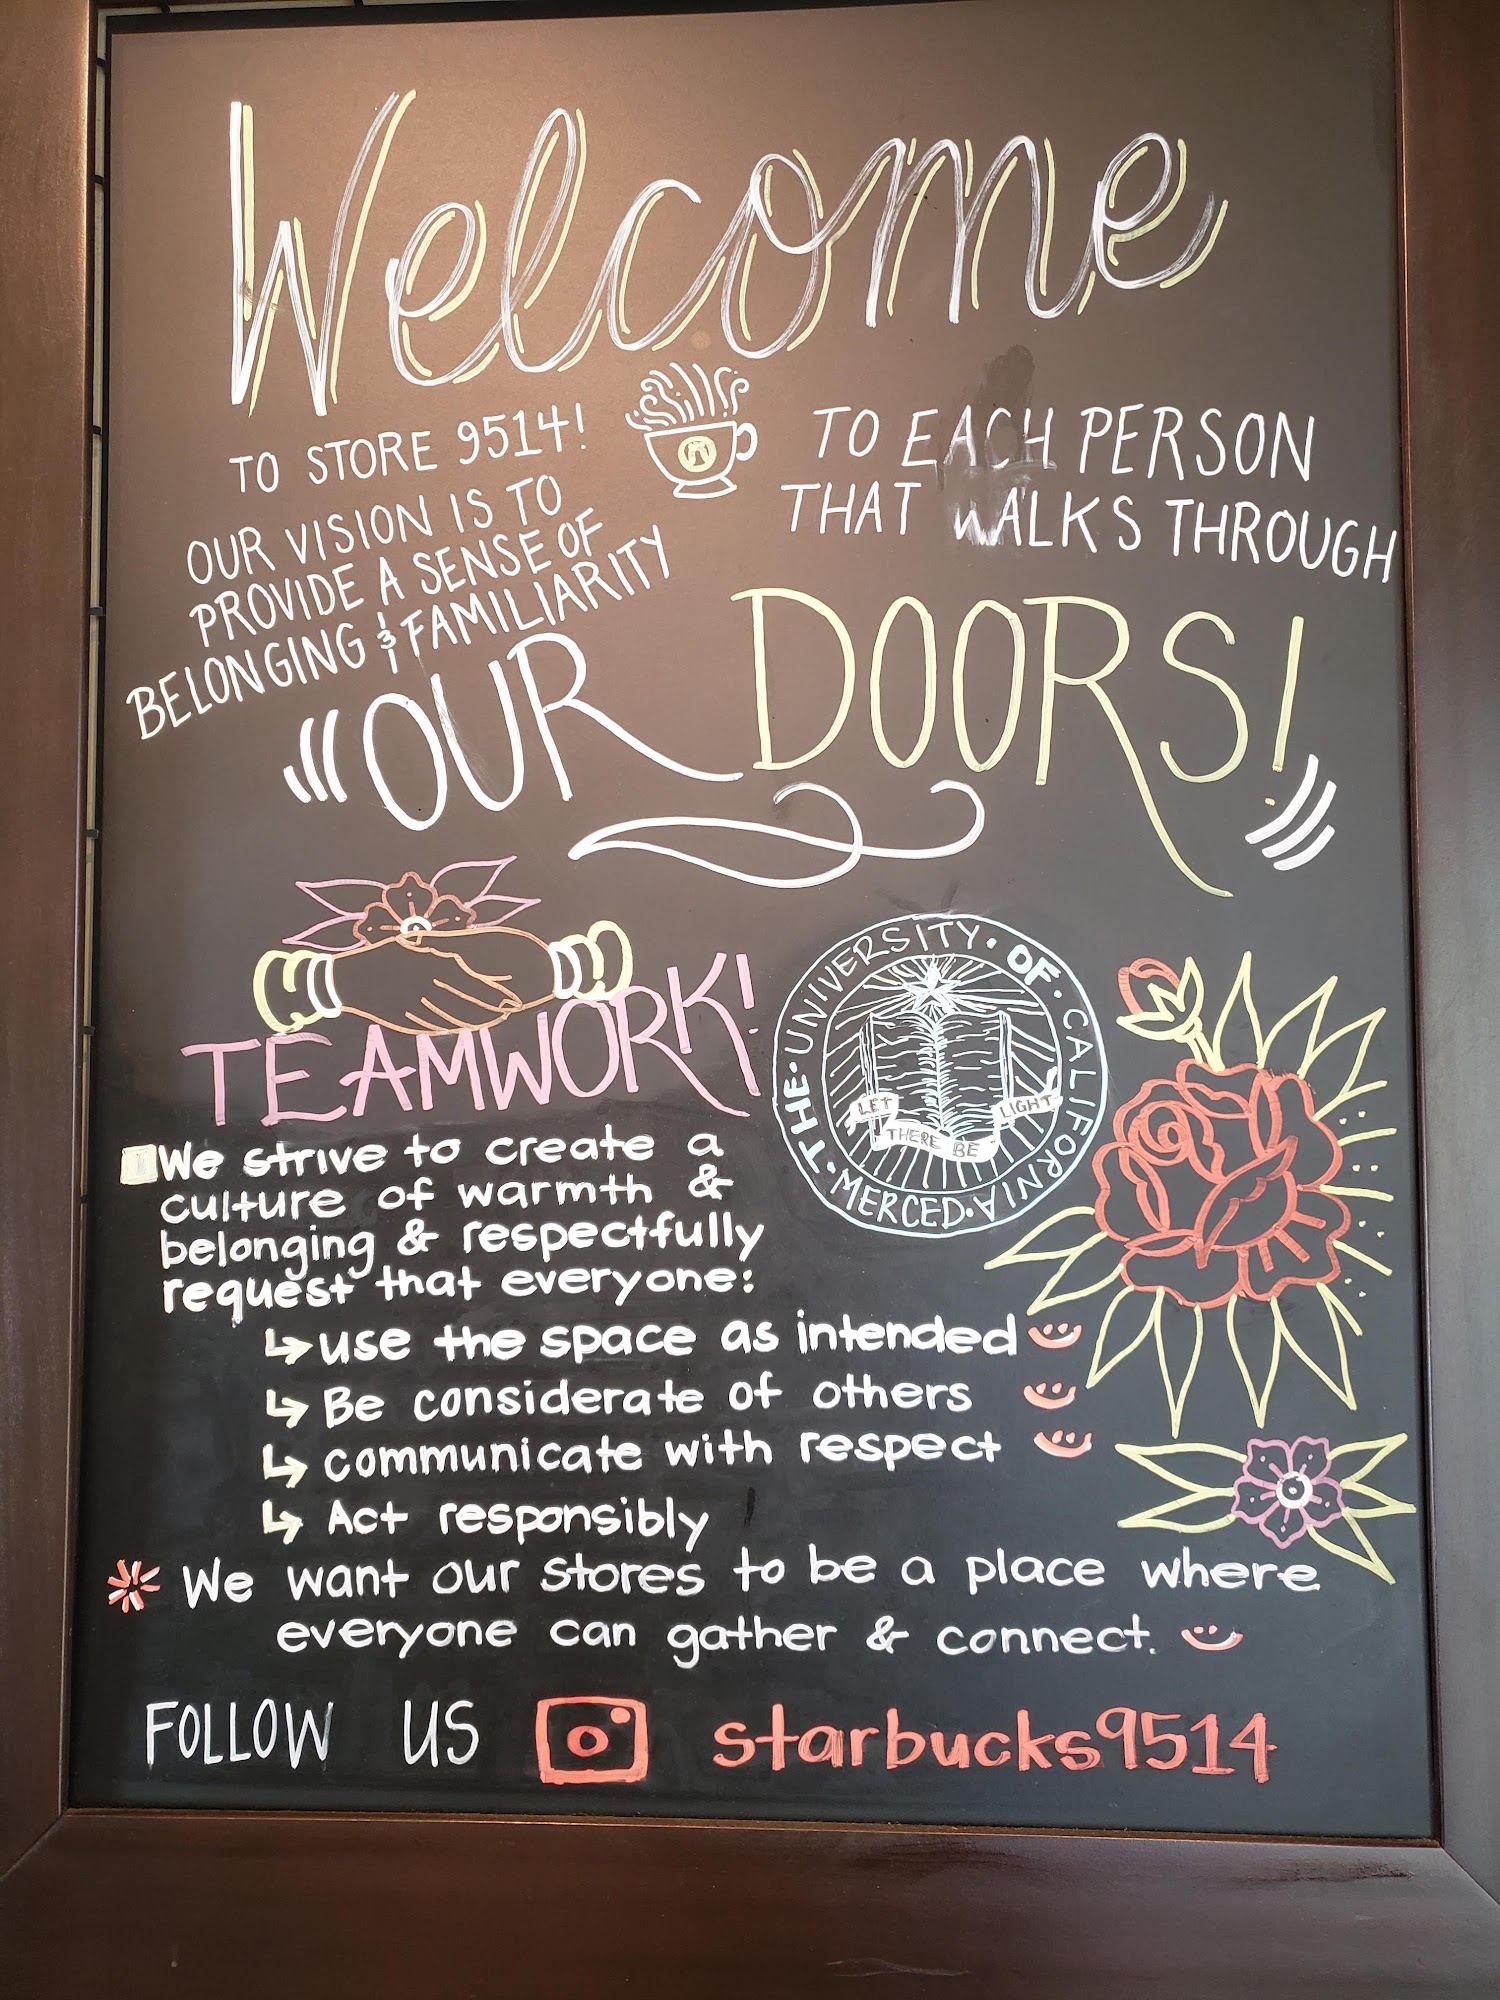 Welcome
TO STORE 9514!
OUR VISION IS TO
PROVIDE A SENSE OF
BELONGING & FAMILIARITY
TO EACH PERSON
THAT WALKS THROUGH
OUR DOORS!
TEAMWORK!
THE · UNIVERSITY · OF · CALIFORNIA · MERCED ·
LET THERE BE LIGHT
We strive to create a
culture of warmth &
belonging & respectfully
request that everyone:
↳ use the space as intended
↳ Be considerate of others
↳ communicate with respect
↳ Act responsibly
We want our stores to be a place where
everyone can gather & connect.
FOLLOW US starbucks9514